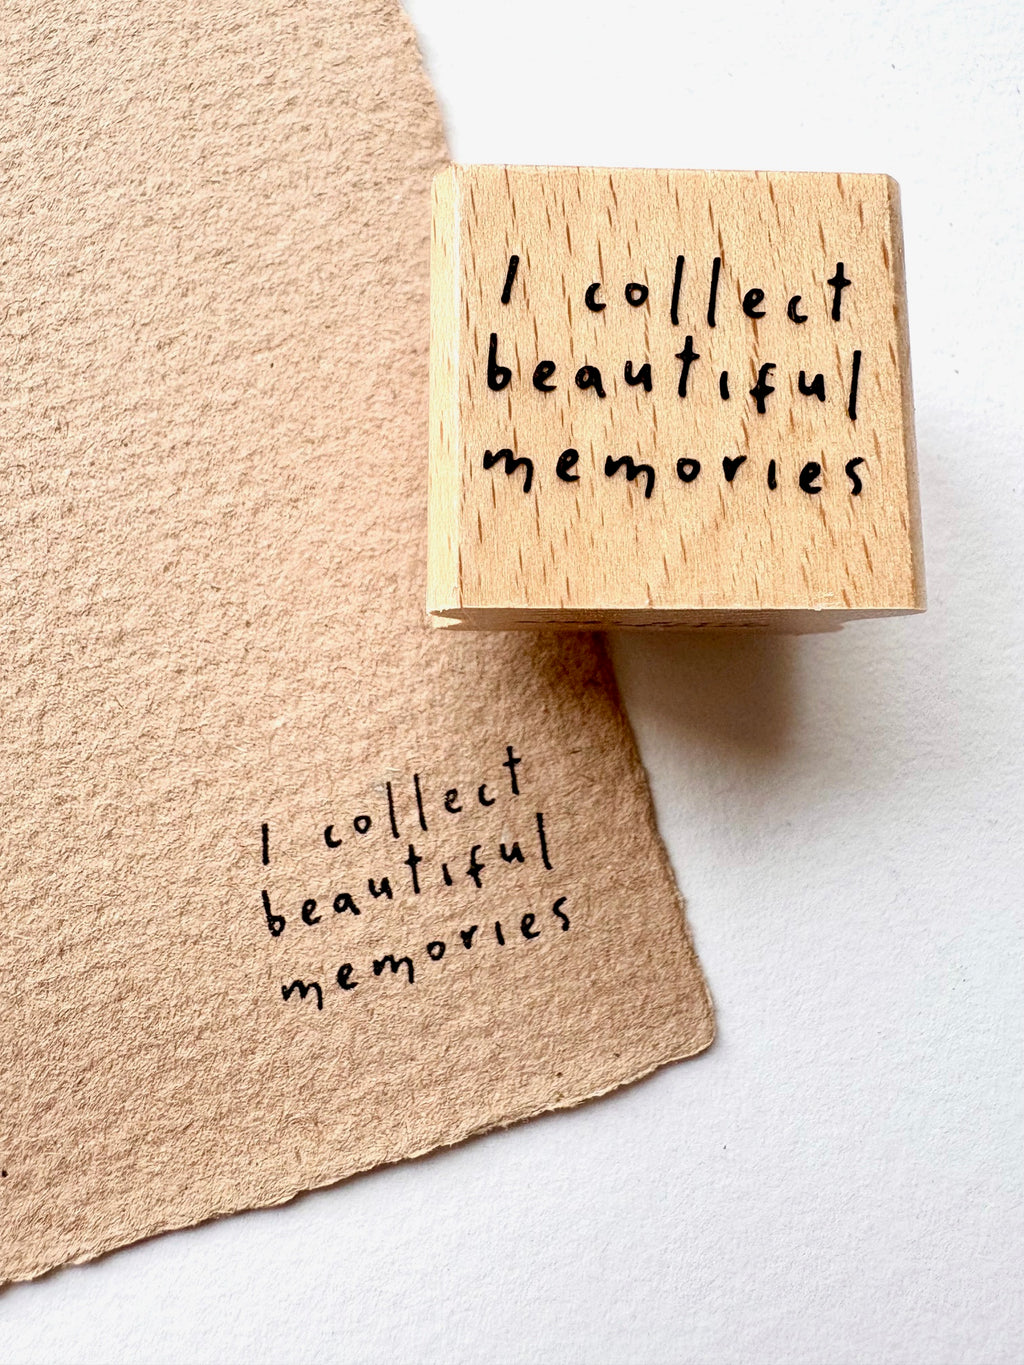 I collect
beautiful
memories
I collect
beautiful
memories